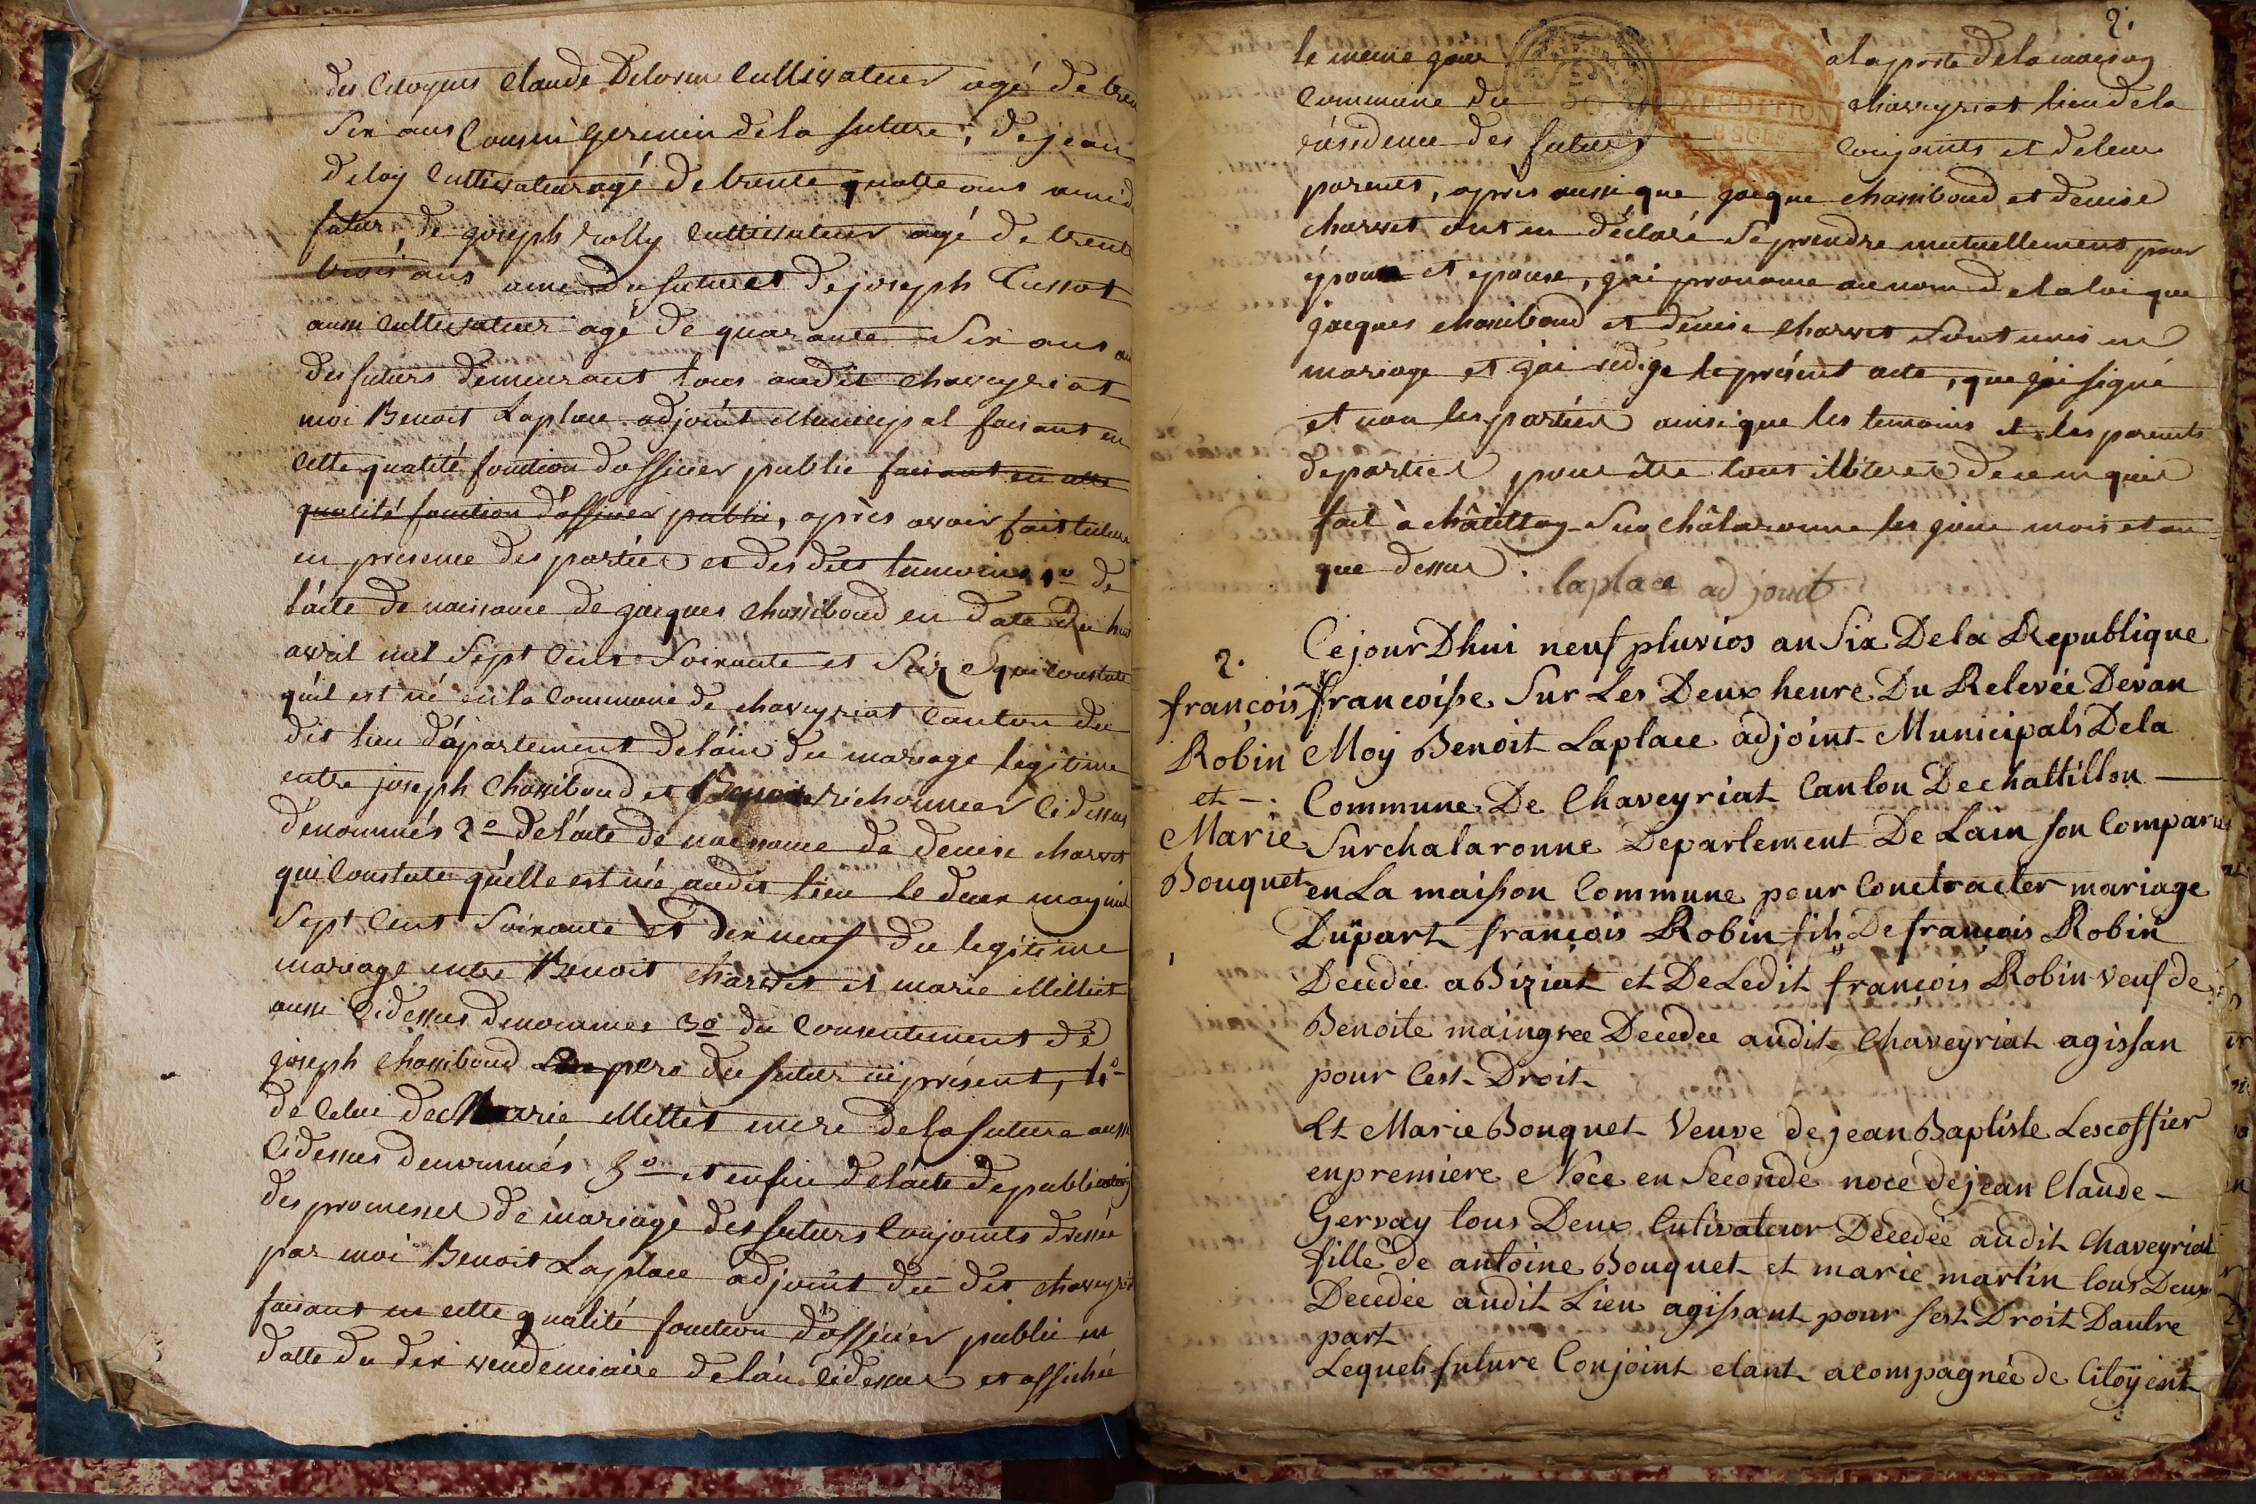 des Citoyens Claude Delorme Cultivateur agé de tren
Six ans Cousin germain de la future ; de jean
deloy Cultivateur agé de trente quatte ans ami d
futur, de joseph rolly Cultivateur agé de trent
trois ans ami du futur et de joseph Cussot
aussi Cultivateur agé de quarante Six ans a
des futurs demeurant tous audit chaveyriat
moi Benoit Laplace adjoint Municipal faisant en
Cette qualité fonction d'officier public faisant en cette
qualité fonction d'officier public, après avoir fait lecture
en presence des parties et des dits temoins, 1o de
l'acte de naissance de jacques chassiboud en date du huit
avril mil Sept Cent Soixante et Seize qui constate
qu'il est né en la Commune de chaveyriat Canton du
dit lieu département de l'ain du mariage légitime
entre joseph Chassiboud et Benoite richonnier Cidessus
dénommés 2o de l'acte de naissance de denise charvet
qui Constate qu'elle est née audit lieu le deux may mil
Sept Cent Soixante et dix neuf du legitime
mariage entre Benoit Charvet et marie Milliet
aussi Cidessus denommés 3o du Consentement de
joseph chassiboud pere du futur ici présent, 4o
de Celui de Marie Milliet mere de la future aussi
Cidessus denommés 5o et enfin de l'acte de publication
des promesses de mariage des futurs Conjoints dressée
par moi Benoit Laplace adjoint du dit chaveyriat
faisant en cette qualité fonction d'officier public en
datte du dix vendemiaire de l'an cidessus et affichée
2.
le meme jour à la porte de la maison
Commune du chaveyriat lieu de la
résidence des futurs Conjoints et de leur
EXPEDITION
8 SOLS
parents, après aussi que jacque chassiboud et denise
charvet ont eu déclaré se prendre mutuellement pour
époux et epouse, j'ai prononcé au nom de la loi que
jacques chassiboud et denise charvet sont unis en
mariage et j'ai redigé le présent acte, que j'ai signé
et non les parties ainsi que les temoins et les parents
de parties pour être tous illiteres de ce enquis
fait à châtillon Sur Châlaronne les jour mois et an
que dessus
laplace adjoint
2.
françois
Robin
et
Marie
Bouquet
Cejour Dhui neuf pluvios an Six De la Republique
francoisse Sur Les Deux heure Du Relevée Devan
Moy Benoit Laplace adjoint Municipals De la
Commune De Chaveyriat Canton De chattillon
Surchalaronne Departement De Lain son Comparus
en La maison Commune pour Conctracter mariage
Dupart françois Robin fils De françois Robin
Decedée a Biziat et De Ledit françois Robin veuf de
Benoite maingree Decedee audit Chaveyriat agissan
pour Cest Droit
Et Marie Bouquet Veuve de jean Baptiste Lescoffier
en premiere Noce en Seconde noce de jean Claude
Gervay tous Deux Cutivateur Decedée audit Chaveyriat
fille de antoine Bouquet et marie martin tous Deux
Decedée audit Lieu agissant pour sest Droit Dautre
part
Lequels future Conjoint etant acompagnée de Citoyent